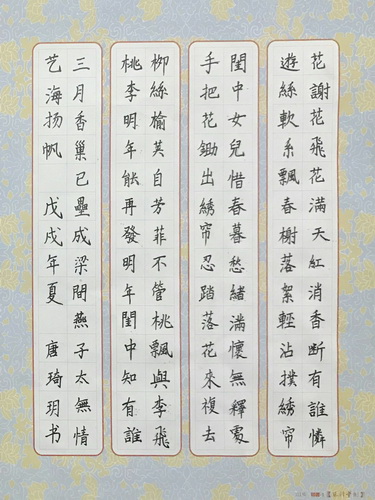 花謝花飛花滿天紅消香断有誰憐
遊絲軟系飄春榭落絮輕沾撲綉帘
閨中女兒惜春暮愁緒滿懷無釋處
手把花鋤出綉帘忍踏落花來複去
柳絲榆荚自芳菲不管桃飄與李飛
桃李明年能再發明年閨中知有誰
三月香巢已壘成梁間燕子太無情
艺海扬帆 戊戌年夏 唐琦玥书